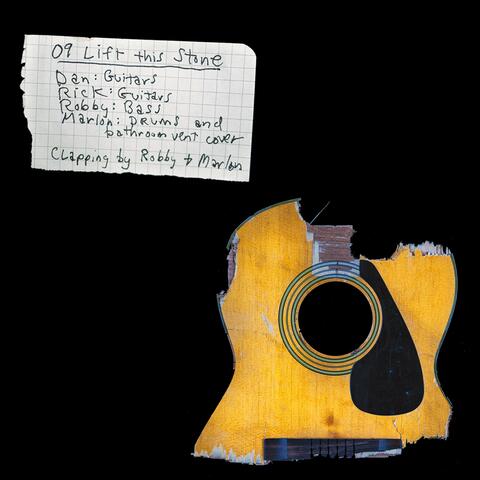 09 Lift this Stone
Dan: Guitars
Rick: Guitars
Robby: Bass
Marlon: Drums and
bathroom vent cover
Clapping by Robby + Marlon